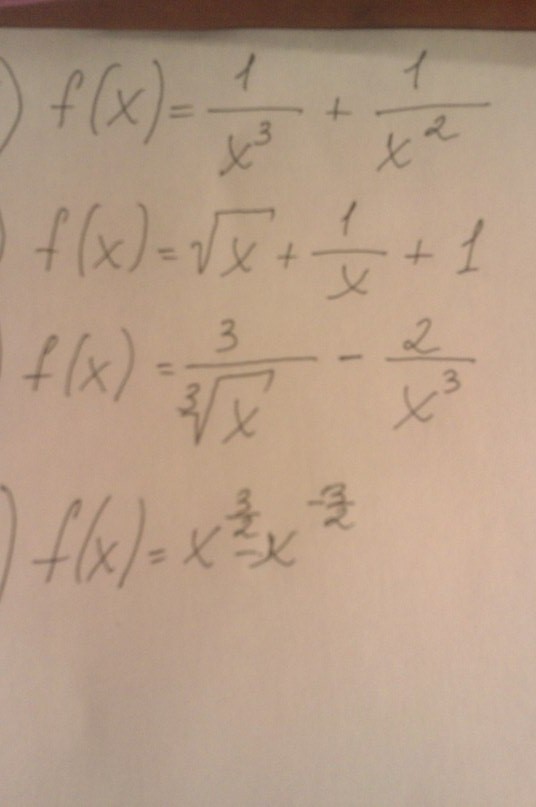 ) f(x) = 1/x³ + 1/x²
) f(x) = √x + 1/x + 1
) f(x) = 3/∛x - 2/x³
) f(x) = x^(3/2) - x^(-3/2)